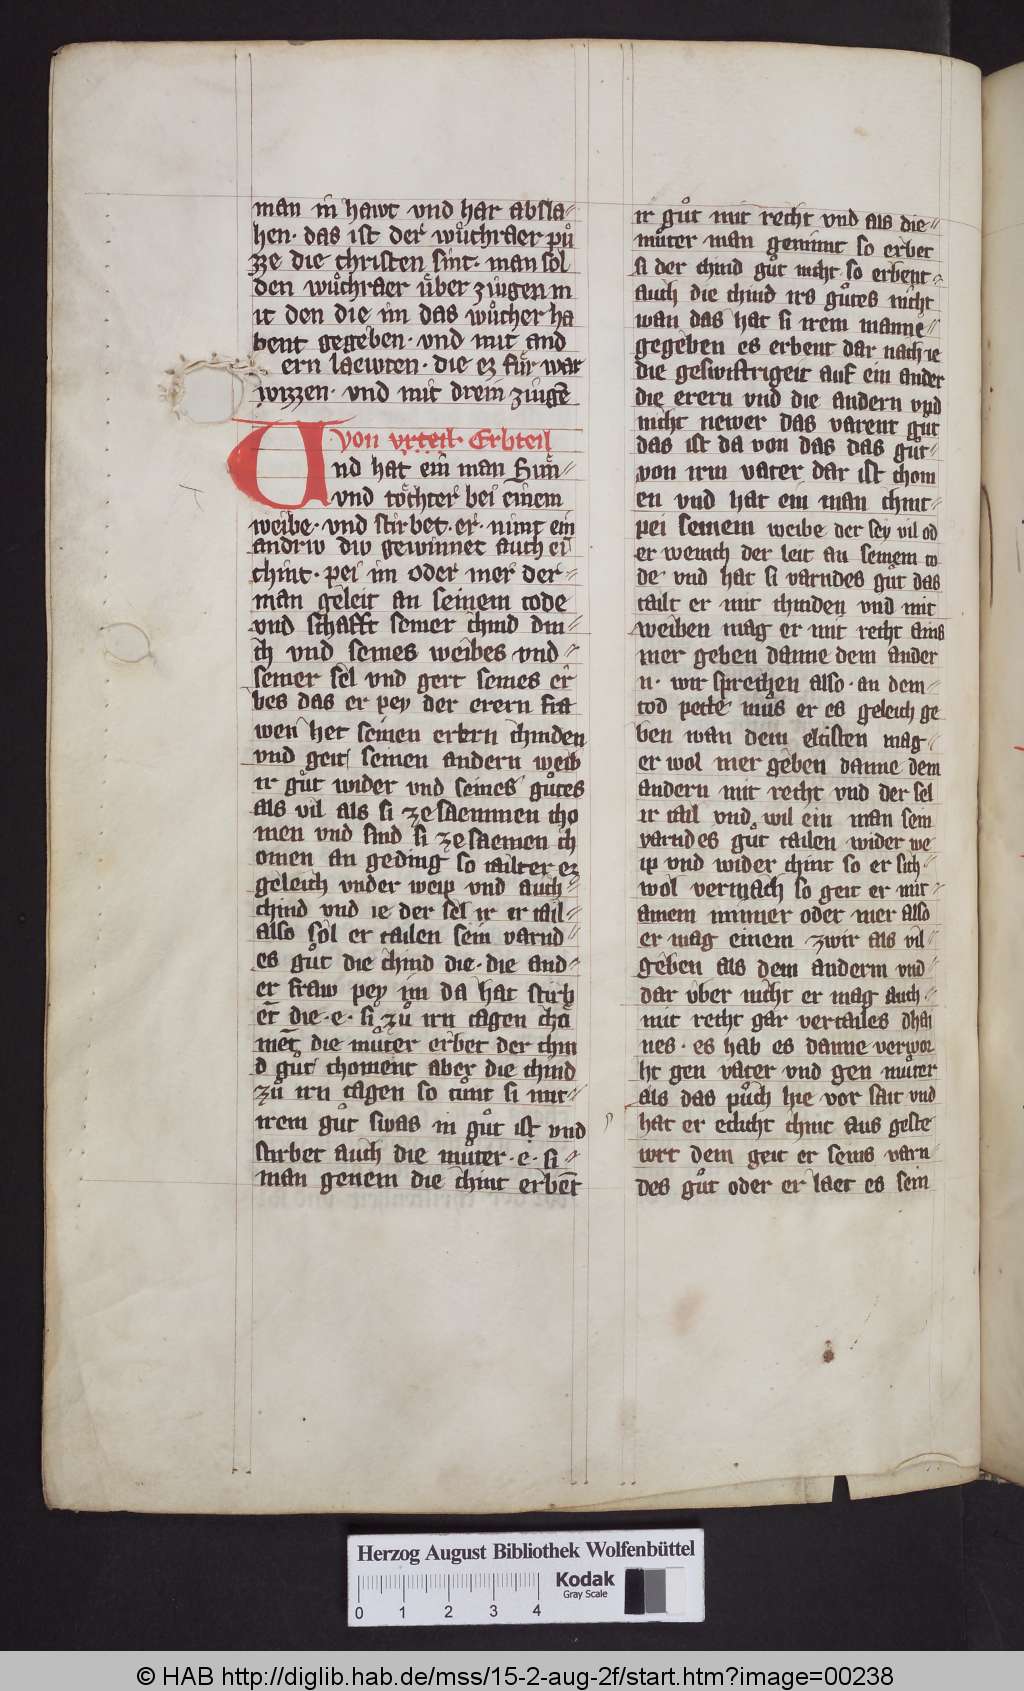 man in hawt vnd har absla⸗
hen· das ist der wůchraer pů
zze die christen sint· man sol
den wůchraer vͤber zivgen m
it den die im das wůcher ha
bent gegeben· vnd mit and
ern laewten· die ez fuͤr war
wizzen· vnd mit drein zivgē
Von vrteil· Erbteil
Vnd hat ein man Suͤn⸗
vnd toͤchter bei einem
weibe· vnd stirbet· er· nimt ein
andriv div gewinnet auch ei
chint· pei im oder mer der⸗
man geleit an seinem tode
vnd schafft seiner chind din⸗
ch vnd seines weibes vnd⸗
seiner sel vnd gert seines er
bes das er pey der erern fra
wen het seinen erbern chinden
vnd geit seinen andern weib
ir gůt wider vnd seines gůtes
als vil als si ze saemmen cho
men vnd sind si ze saemen ch
omen an geding so tailter ez
geleich vnder weip vnd auch⸗
chind vnd ie der sel ir er tail⸗
also sol er tailen sein varnd⸗
es gůt die chind die· die and⸗
er fraw pey im da hat stirb
et die· e· si zů irn tagen chō
ment die můter erbet der chin
d gůt choment aber die chind
zů irn tagen so tůnt si mit⸗
irem gůt swas in gůt ist vnd
stirbet auch die můter· e· si⸗
man genem die chint erbēt
ir gůt mit recht vnd als die⸗
můter man genimt so erbet
si der chind gůt nicht so erbent⸗
auch die chind irs gůtes nicht
wan das hat si irem manne⸗
gegeben es erbent dar nach ie
die geswistrigeit auf ein ander
die erern vnd die andern vnd
nicht newer das varent gůt
das ist da von das das gůt⸗
von irm vater dar ist chom
en vnd hat ein man chint⸗
pei seinem weibe der sey vil od
er wenich der leit an seinem to
de vnd hat si varndes gůt das
tailt er mit chinden vnd mit
weiben mag er mit recht aim
mer geben danne dem ander
n· wir sprechen also· an dem⸗
tod pette můs er es geleich ge
ben wan dem eltisten mag⸗
er wol mer geben danne dem
andern mit recht vnd der sel
ir tail vnd wil ein man sein
varndes gůt tailen wider we
ip vnd wider chint so er sich⸗
wol vermach so geit er mit⸗
ainem minner oder mer also
er mag einem zwir als vil⸗
geben als dem anderm vnd⸗
dar vber nicht er mag auch⸗
mit recht gar vertailes dhai
nes· es hab es danne verwor
ht gen vater vnd gen můter
als das půch hie vor sait vnd
hat er eelicht chint aus geste
wrt dem geit er seins varn⸗
des gůt oder er laet es sein
Herzog August Bibliothek Wolfenbüttel
0 1 2 3 4
Kodak
Gray Scale
© HAB http://diglib.hab.de/mss/15-2-aug-2f/start.htm?image=00238